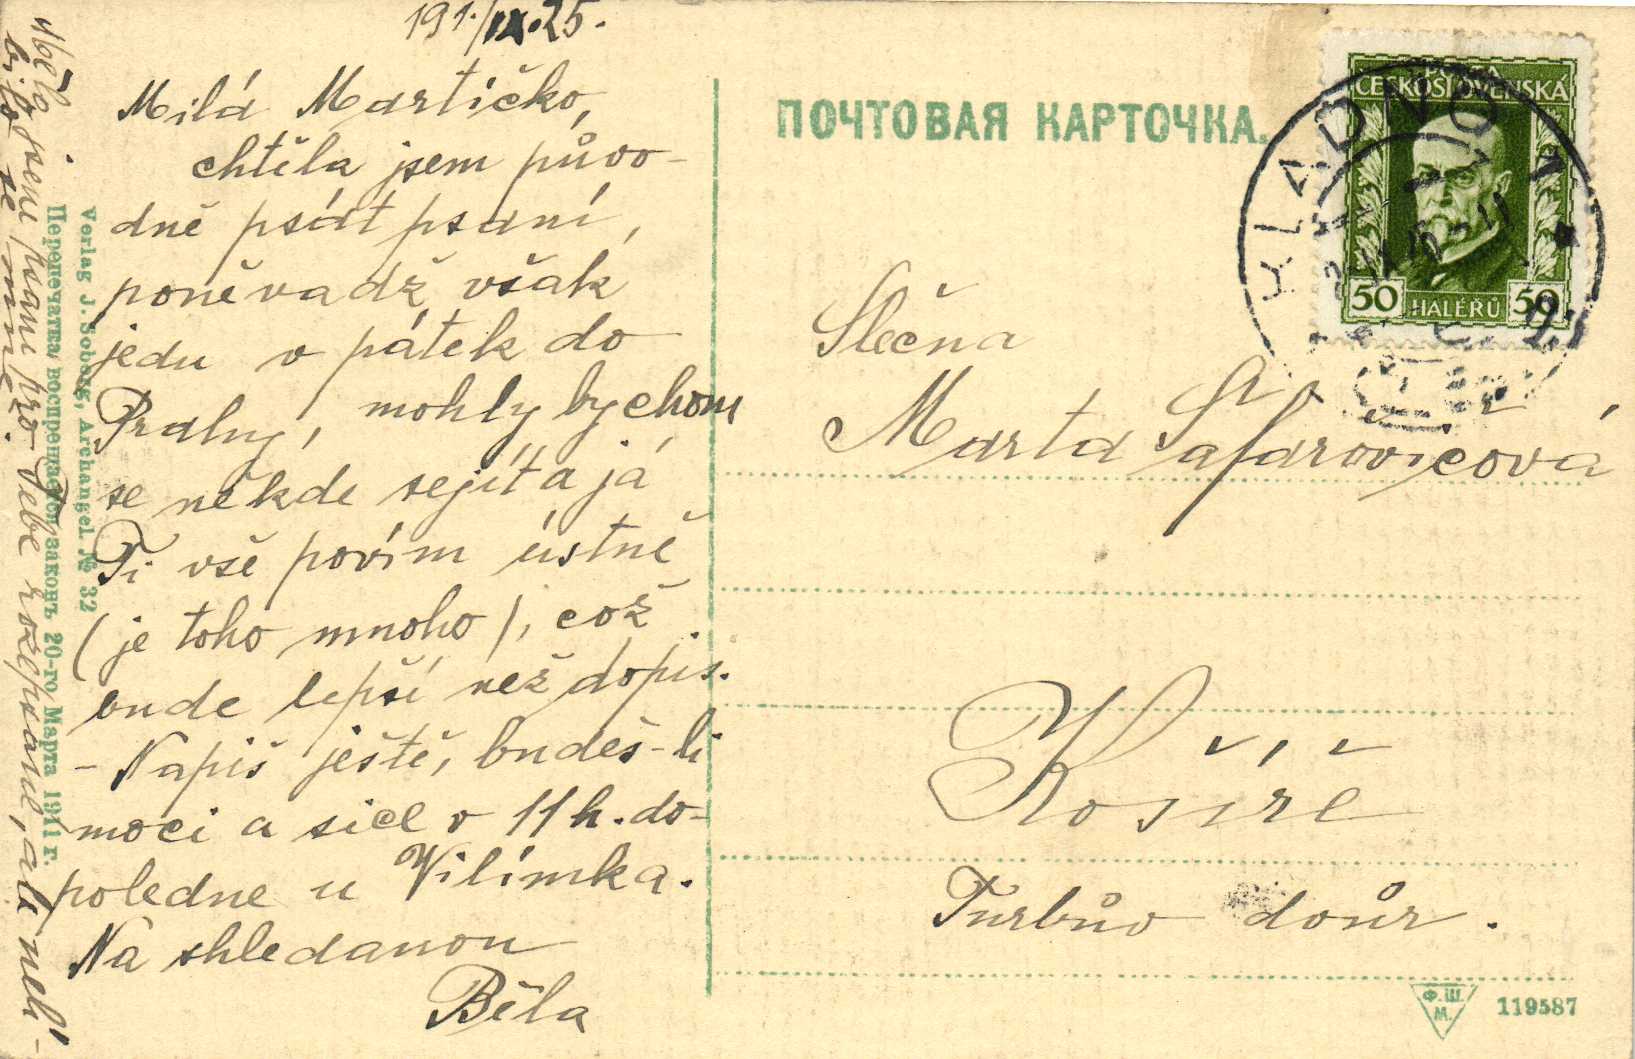 191./IX.25.
Milá Martičko,
chtěla jsem půvo-
dně psát psaní,
poněvadž však
jedu v pátek do
Prahy, mohly bychom
se někde sejít a já
Ti vše povím ústně
(je toho mnoho), což
bude lepší než dopis.
- Napiš ještě, budeš-li
moci a sice v 11 h. do-
poledne u Vilímka.
Na shledanou
Běla
Měla jsem psaní pro Tebe rozepsané, ale nelí-
bilo se mně.
Verlag J. Soborg, Archangel. № 32
Перепечатка воспрещается законъ 20-го Марта 1911 г.
ПОЧТОВАЯ КАРТОЧКА.
ČESKOSLOVENSKÁ
50 HALÉŘŮ 50
KLADNO 1
Slečna
Marta Šafarovičová
Košíře
Turbův dvůr.
Ф.Ш.
М.
119587